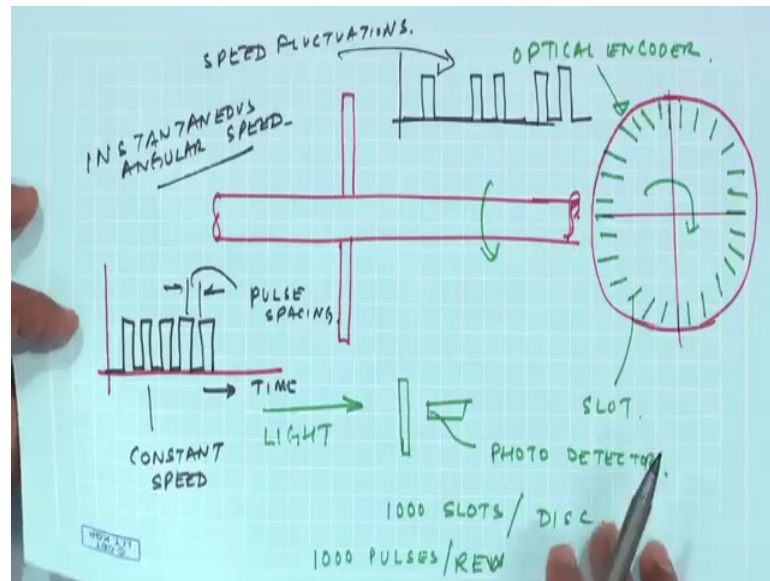 SPEED FLUCTUATIONS.
OPTICAL ENCODER.
INSTANTANEOUS
ANGULAR SPEED
PULSE
SPACING
TIME
CONSTANT
SPEED
LIGHT
SLOT.
PHOTO DETECTOR.
1000 SLOTS / DISC.
1000 PULSES/REV
© CET
I.I.T. KGP